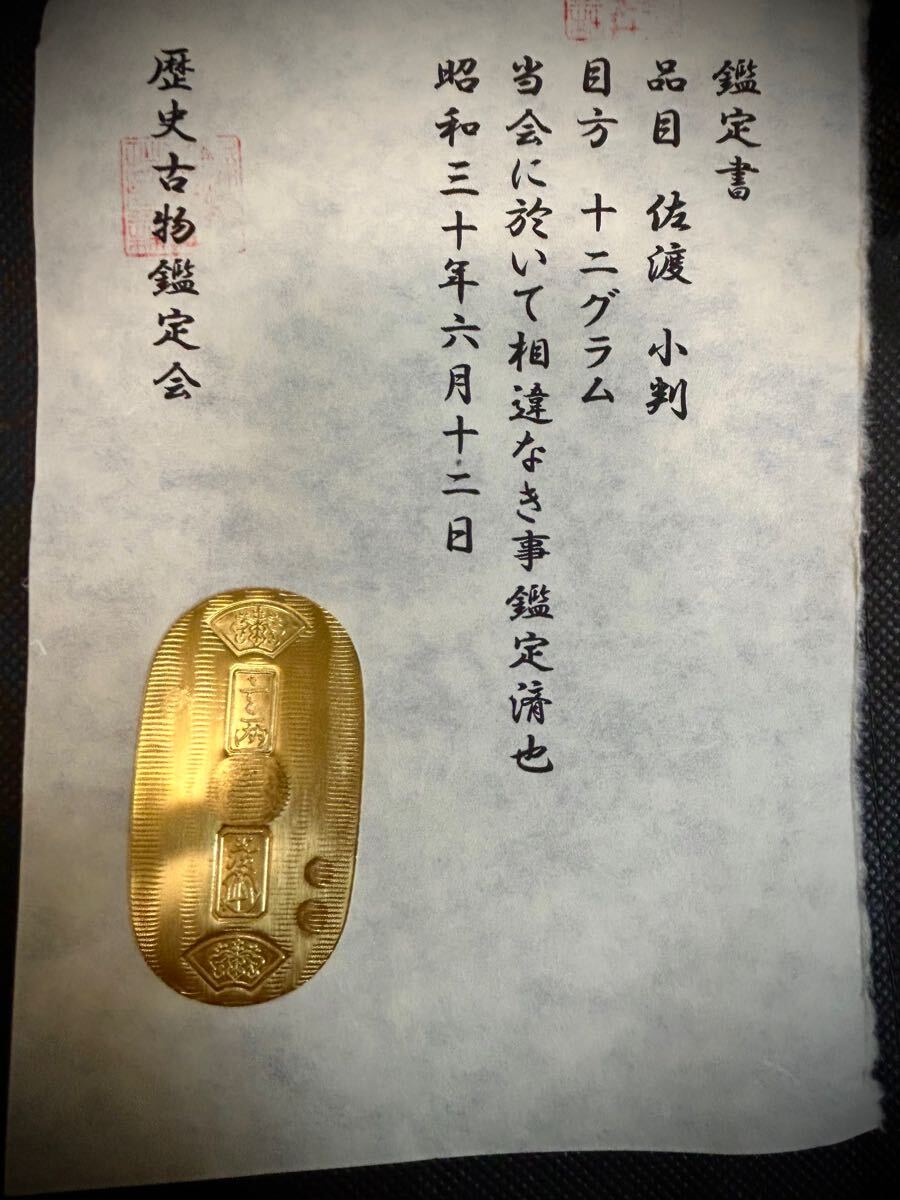 鑑定書
品目 佐渡 小判
目方 十二グラム
当会に於いて相違なき事鑑定済也
昭和三十年六月十二日
歴史古物鑑定会